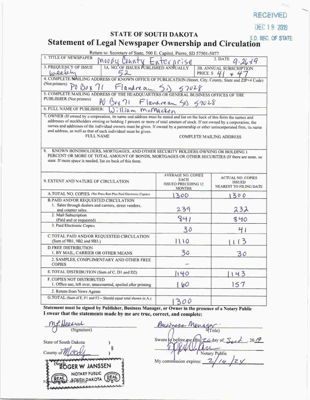 RECEIVED
DEC 19 2019
SD SEC OF STATE
STATE OF SOUTH DAKOTA
Statement of Legal Newspaper Ownership and Circulation
Return to: Secretary of State, 500 E. Capitol, Pierre, SD 57501-5077
1. TITLE OF NEWSPAPER Moody County Enterprise 2. DATE 9-26-19
3. FREQUENCY OF ISSUE weekly 3A. NO. OF ISSUES PUBLISHED ANNUALLY 52 3B. ANNUAL SUBSCRIPTION PRICE $ 41 + 47
4. COMPLETE MAILING ADDRESS OF KNOWN OFFICE OF PUBLICATION (Street, City, County, State and ZIP+4 Code)
(Not printers) PO Box 71 Flandreau SD 57028
5. COMPLETE MAILING ADDRESS OF THE HEADQUARTERS OR GENERAL BUSINESS OFFICES OF THE
PUBLISHER (Not printers) PO Box 71 Flandreau SD 57028
6. FULL NAME OF PUBLISHER: William McMacken
7. OWNER (If owned by a corporation, its name and address must be stated and on the back of this form the names and
addresses of stockholders owning or holding 1 percent or more of total amount of stock. If not owned by a corporation, the
names and addresses of the individual owners must be given. If owned by a partnership or other unincorporated firm, its name
and address, as well as that of each individual must be given.
FULL NAME COMPLETE MAILING ADDRESS
8. KNOWN BONDHOLDERS, MORTGAGEES, AND OTHER SECURITY HOLDERS OWNING OR HOLDING 1
PERCENT OR MORE OF TOTAL AMOUNT OF BONDS, MORTGAGES OR OTHER SECURITIES (If there are none, so
state. If more space is needed, list on back of this form.
9. EXTENT AND NATURE OF CIRCULATION
AVERAGE NO. COPIES EACH ISSUED PRECEDING 12 MONTHS
ACTUAL NO. COPIES ISSUED NEAREST TO FILING DATE
A. TOTAL NO. COPIES 1300 1300
B. PAID AND/OR REQUESTED CIRCULATION
1. Sales through dealers and carriers, street vendors,
and counter sales. 239 232
2. Mail Subscription
(Paid and or requested) 841 840
3. Paid Electronic Copies 30 41
C. TOTAL PAID AND/OR REQUESTED CIRCULATION
(Sum of 9B1, 9B2 and 9B3.) 1110 1113
D. FREE DISTRIBUTION
1. BY MAIL, CARRIER OR OTHER MEANS 30 30
2. SAMPLES, COMPLIMENTARY AND OTHER FREE
COPIES
E. TOTAL DISTRIBUTION (Sum of C, D1 and D2) 1140 1143
F. COPIES NOT DISTRIBUTED
1. Office use, left over, unaccounted, spoiled after printing 160 157
2. Return from News Agents
G. TOTAL (Sum of E, F1 and F2 - Should equal total shown in A.) 1300
Statement must be signed by Publisher, Business Manager, or Owner in the presence of a Notary Public
I swear that the statements made by me are true, correct, and complete:
Business Manager
(Signature) (Title)
State of South Dakota )
County of Moody )
Notary Public
My commission expires:
ROGER W JANSSEN
NOTARY PUBLIC
SEAL SOUTH DAKOTA SEAL